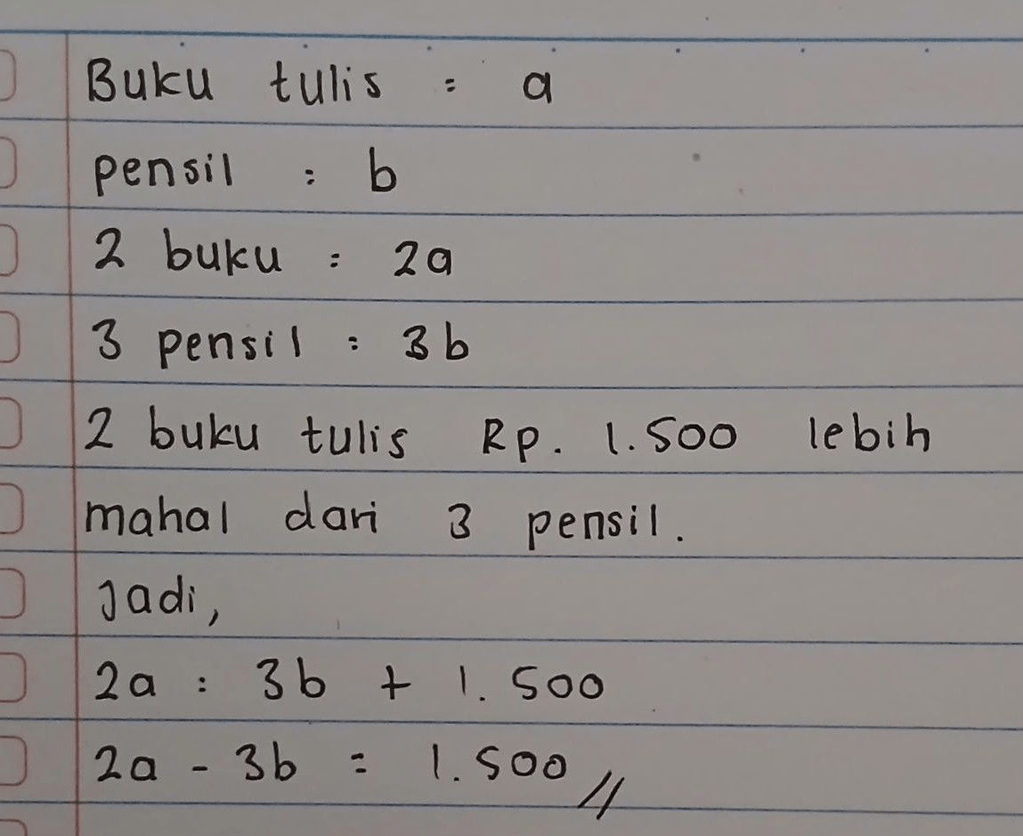 Buku tulis = a
pensil = b
2 buku = 2a
3 pensil = 3b
2 buku tulis Rp. 1.500 lebih
mahal dari 3 pensil.
Jadi,
2a = 3b + 1.500
2a - 3b = 1.500 //